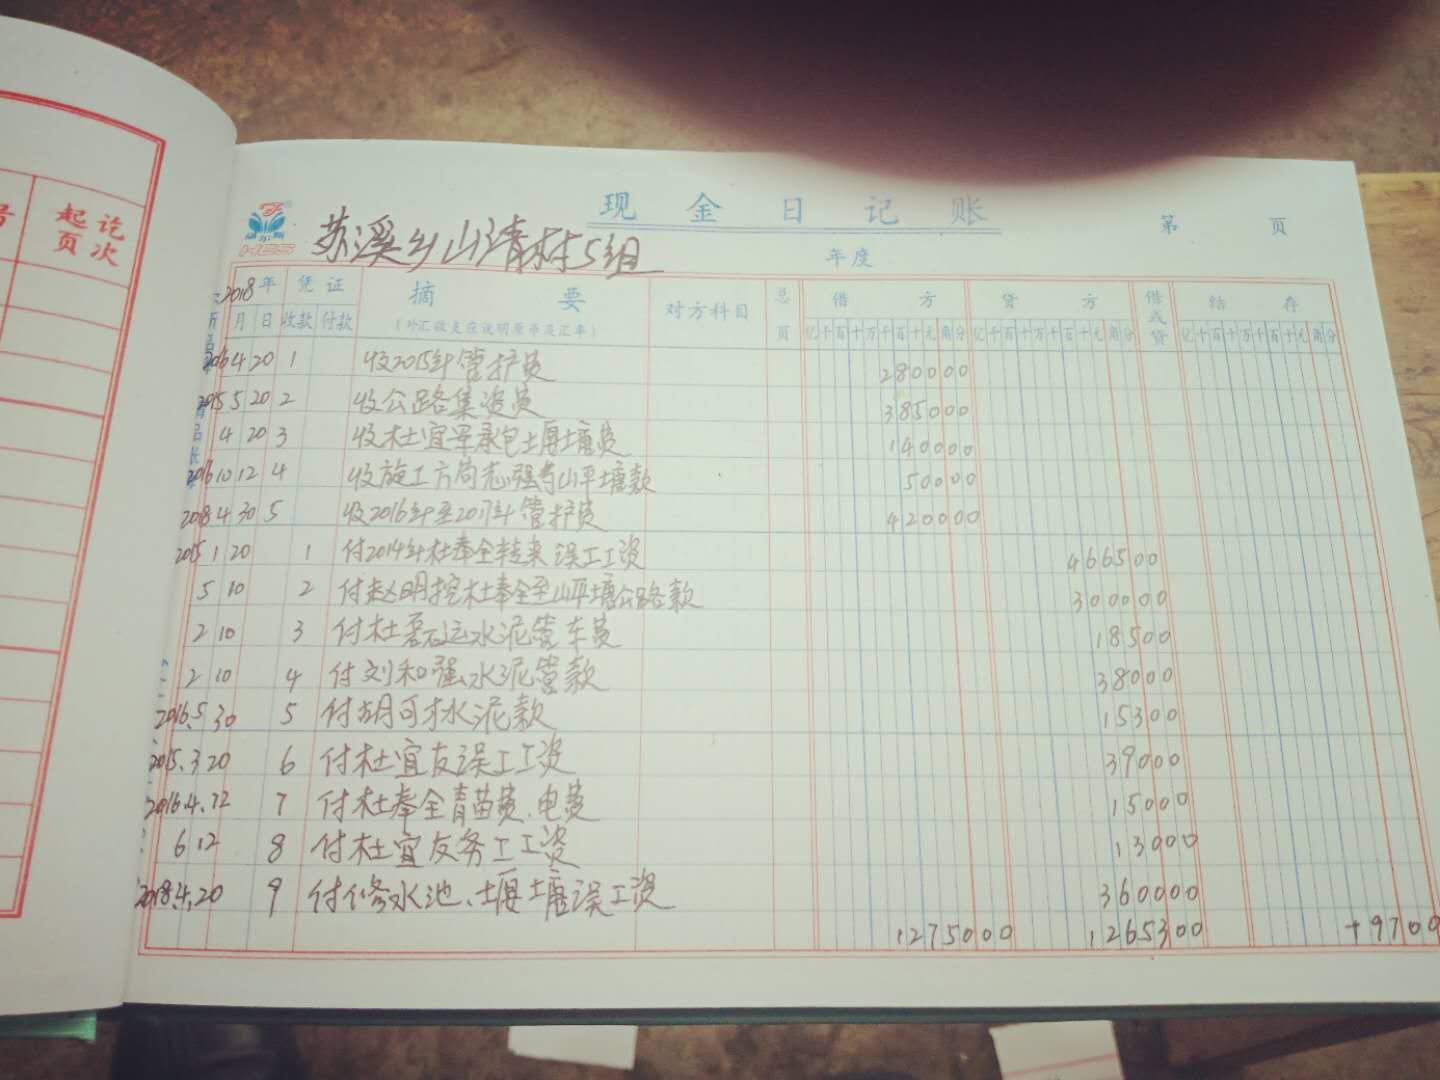 号 起讫
页次
现金日记账
第 页
苏溪乡山清村5组
年度
2018年 凭证 摘要 对方科目 总页 借方 贷方 借或贷 结存
月 日 收款 付款 (外汇收支应说明原币及汇率) 亿千百十万千百十元角分 亿千百十万千百十元角分 亿千百十万千百十元角分
2016 4 20 1 收2015年管护费 280000
2015 5 20 2 收公路集资员 385000
4 20 3 收杜宜军承包土堰塘费 140000
2016 10 12 4 收施工方向志强等山平塘款 50000
2018 4 30 5 收2016年至2017年管护费 420000
2015 1 20 1 付2014年杜奉全转来误工工资 466500
5 10 2 付赵明挖杜奉全至山平塘公路款 300000
2 10 3 付杜磊运水泥管车费 18500
2 10 4 付刘和强水泥管款 38000
2016.5.30 5 付胡可才水泥款 15300
2015.3 20 6 付杜宜友误工工资 39000
2016.4.12 7 付杜奉全青苗费、电费 15000
6 12 8 付杜宜友务工工资 13000
2018.4.20 9 付修水池、堰塘误工资 360000
1275000 1265300 +9700